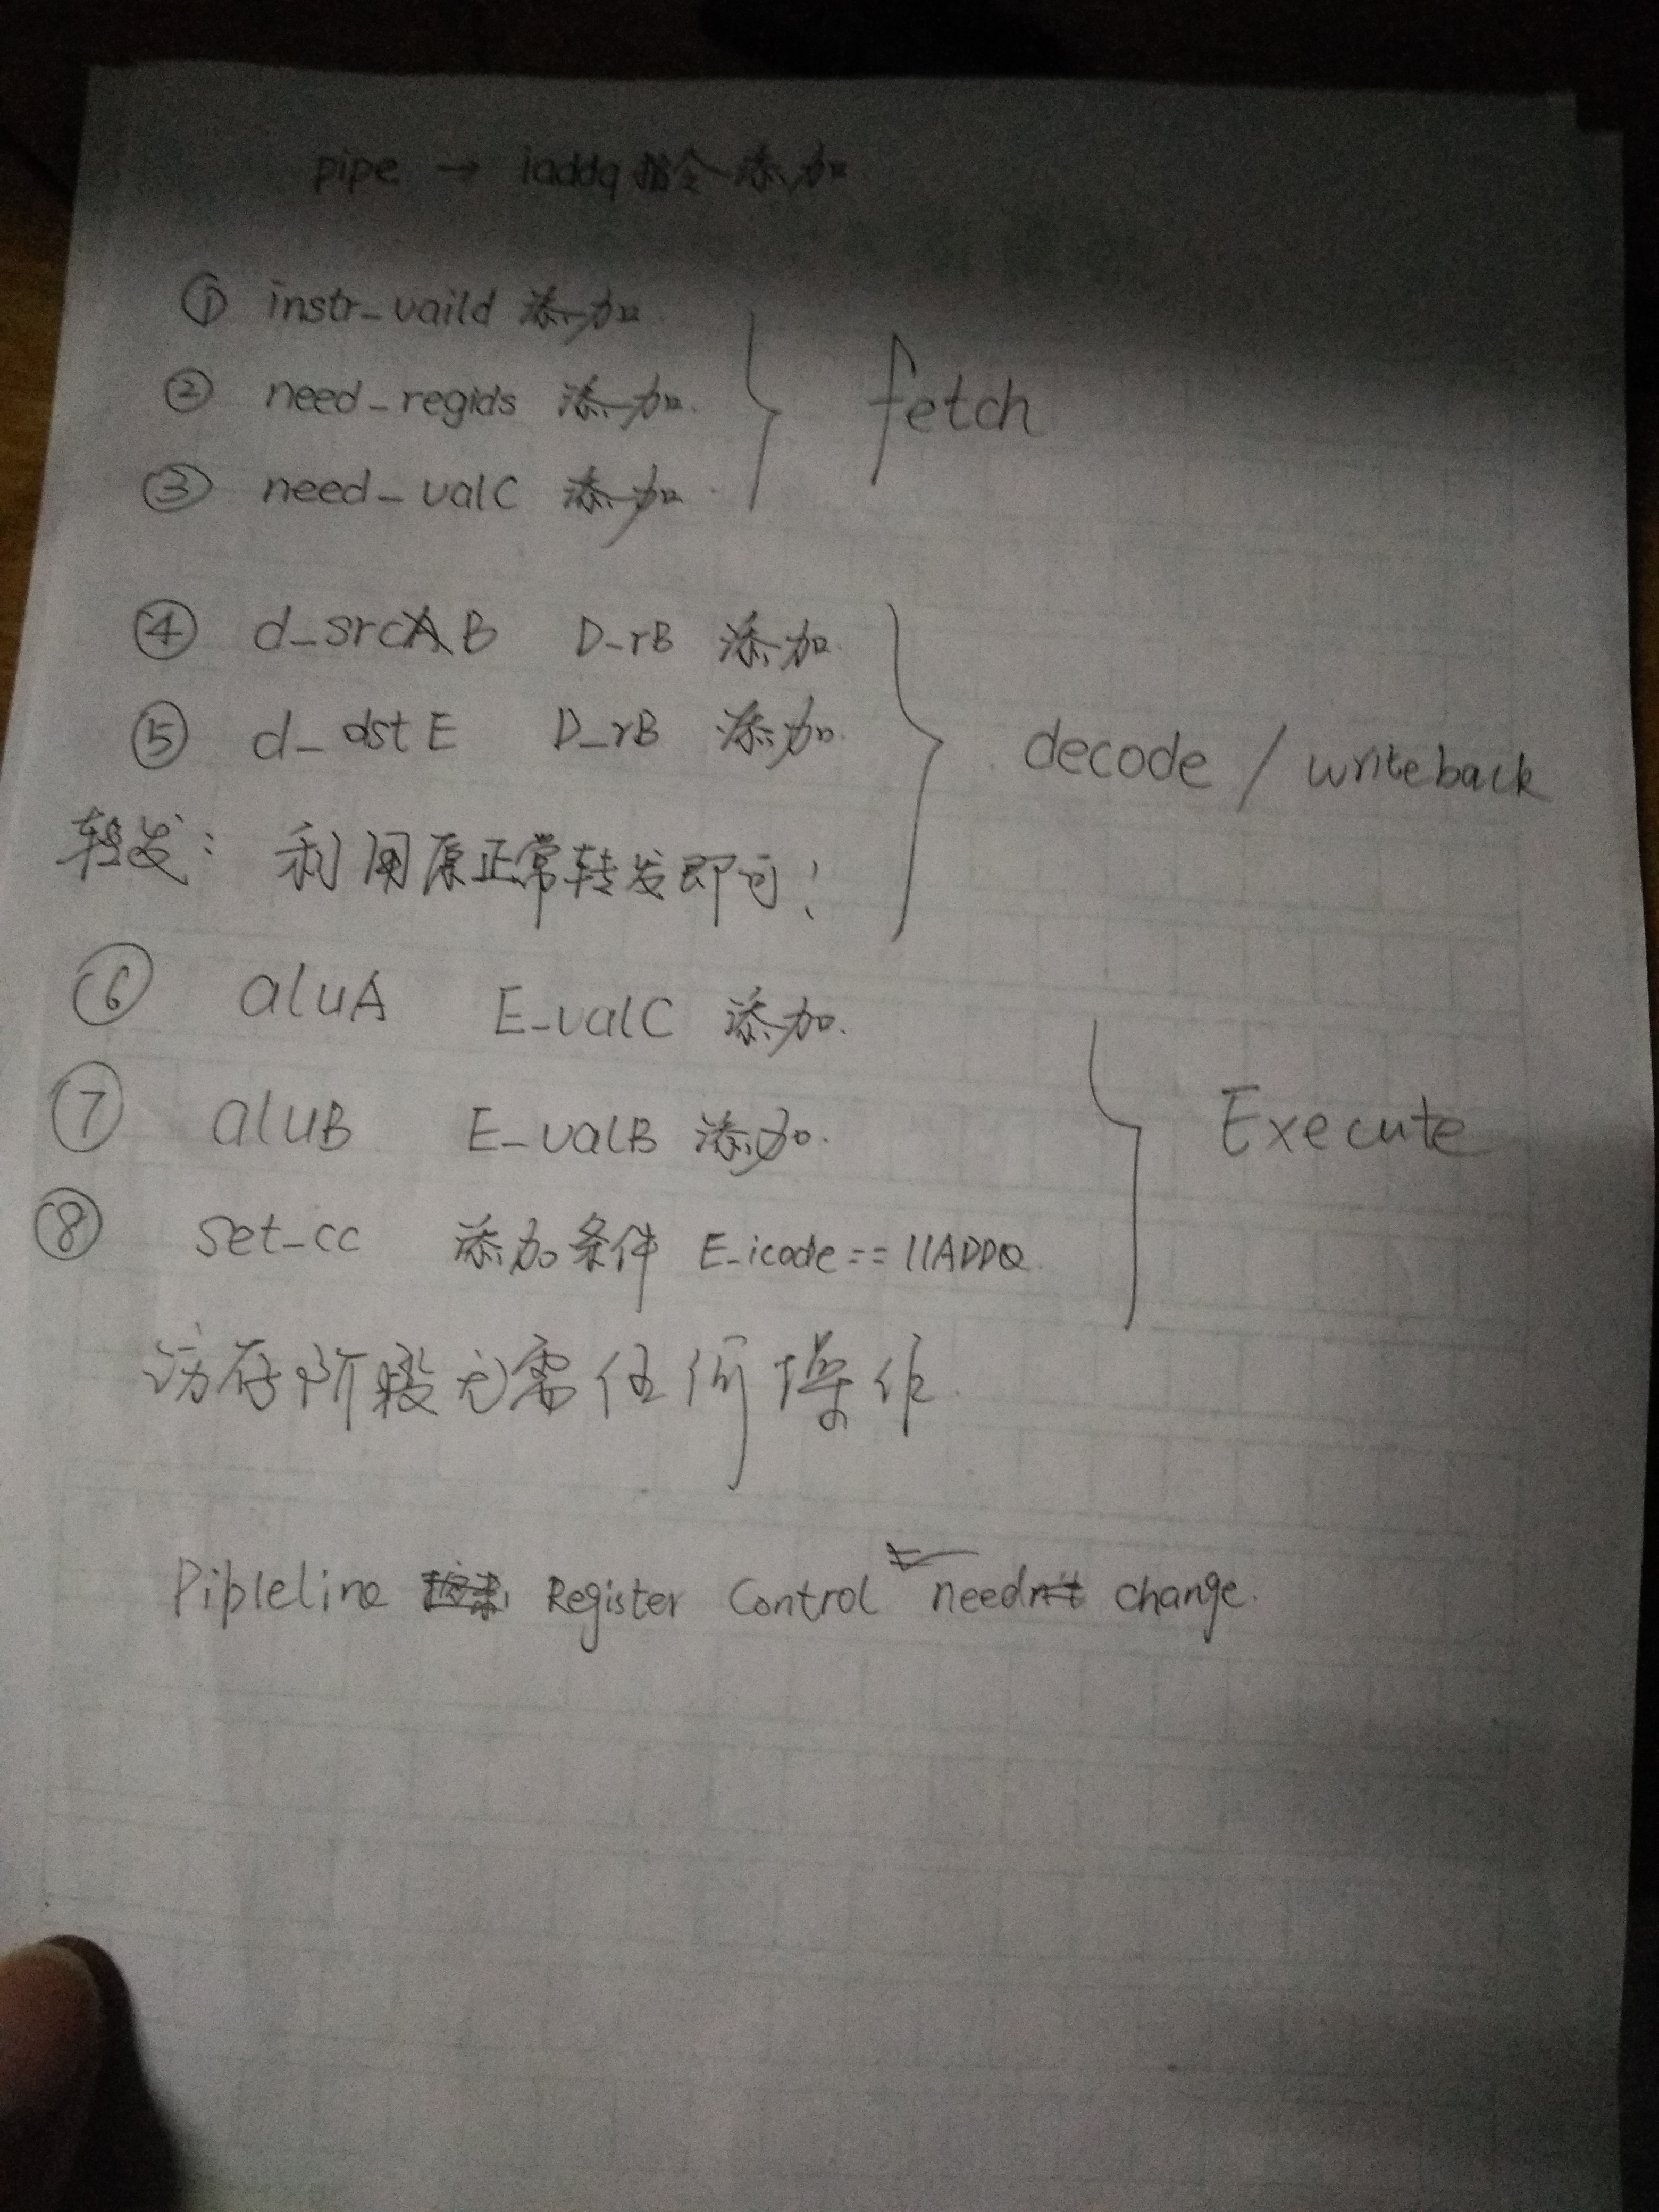 pipe → iaddq指令添加
① instr_vaild 添加
② need_regids 添加
③ need_valC 添加
fetch
④ d_srcB D_rB 添加
⑤ d_dstE D_rB 添加
转发: 利用原正常转发即可!
decode / writeback
⑥ aluA E_valC 添加.
⑦ aluB E_valB 添加.
⑧ set_cc 添加条件 E_icode == IIADDQ
Execute
访存阶段无需任何操作.
Pipleline Register Control need change.